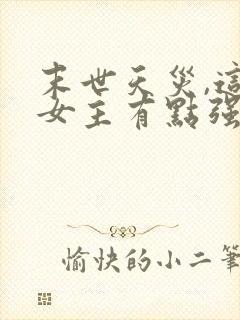 末世天災,這
女主有點强
愉快的小二筆